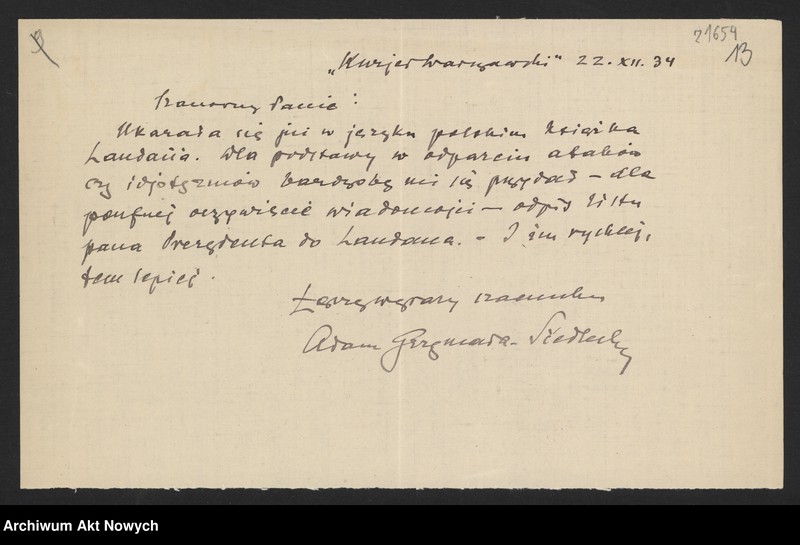 21654
13
„Kurjer Warszawski" 22.XII.34
Szanowny Panie:
Ukazała się już w języku polskim książka
Landaua. Dla podstawy w odparciu ataków
czy idjotyzmów bardzoby mi się przydał – dla
poufnej oczywiście wiadomości – odpis listu
pana Prezydenta do Landaua. – I im rychlej,
tem lepiej.
Łączę wyrazy szacunku
Adam Grzymała-Siedlecki
Archiwum Akt Nowych